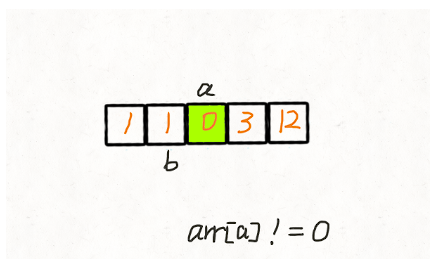 a
1 1 0 3 12
b
arr[a] != 0